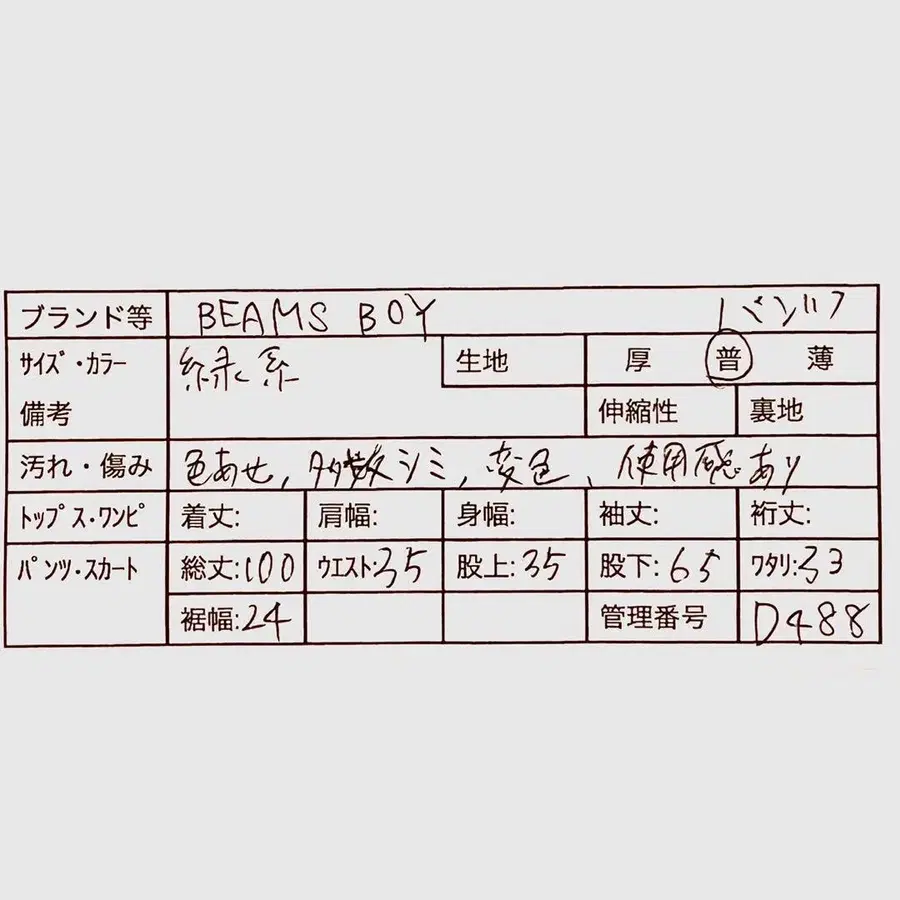 ブランド等 BEAMS BOY パンツ
サイズ・カラー 緑系 生地 厚 普 薄
備考 伸縮性 裏地
汚れ・傷み 色あせ、多数シミ、変色、使用感あり
トップス・ワンピ 着丈: 肩幅: 身幅: 袖丈: 裄丈:
パンツ・スカート 総丈:100 ウエスト:35 股上:35 股下:65 ワタリ:33
裾幅:24 管理番号 D488